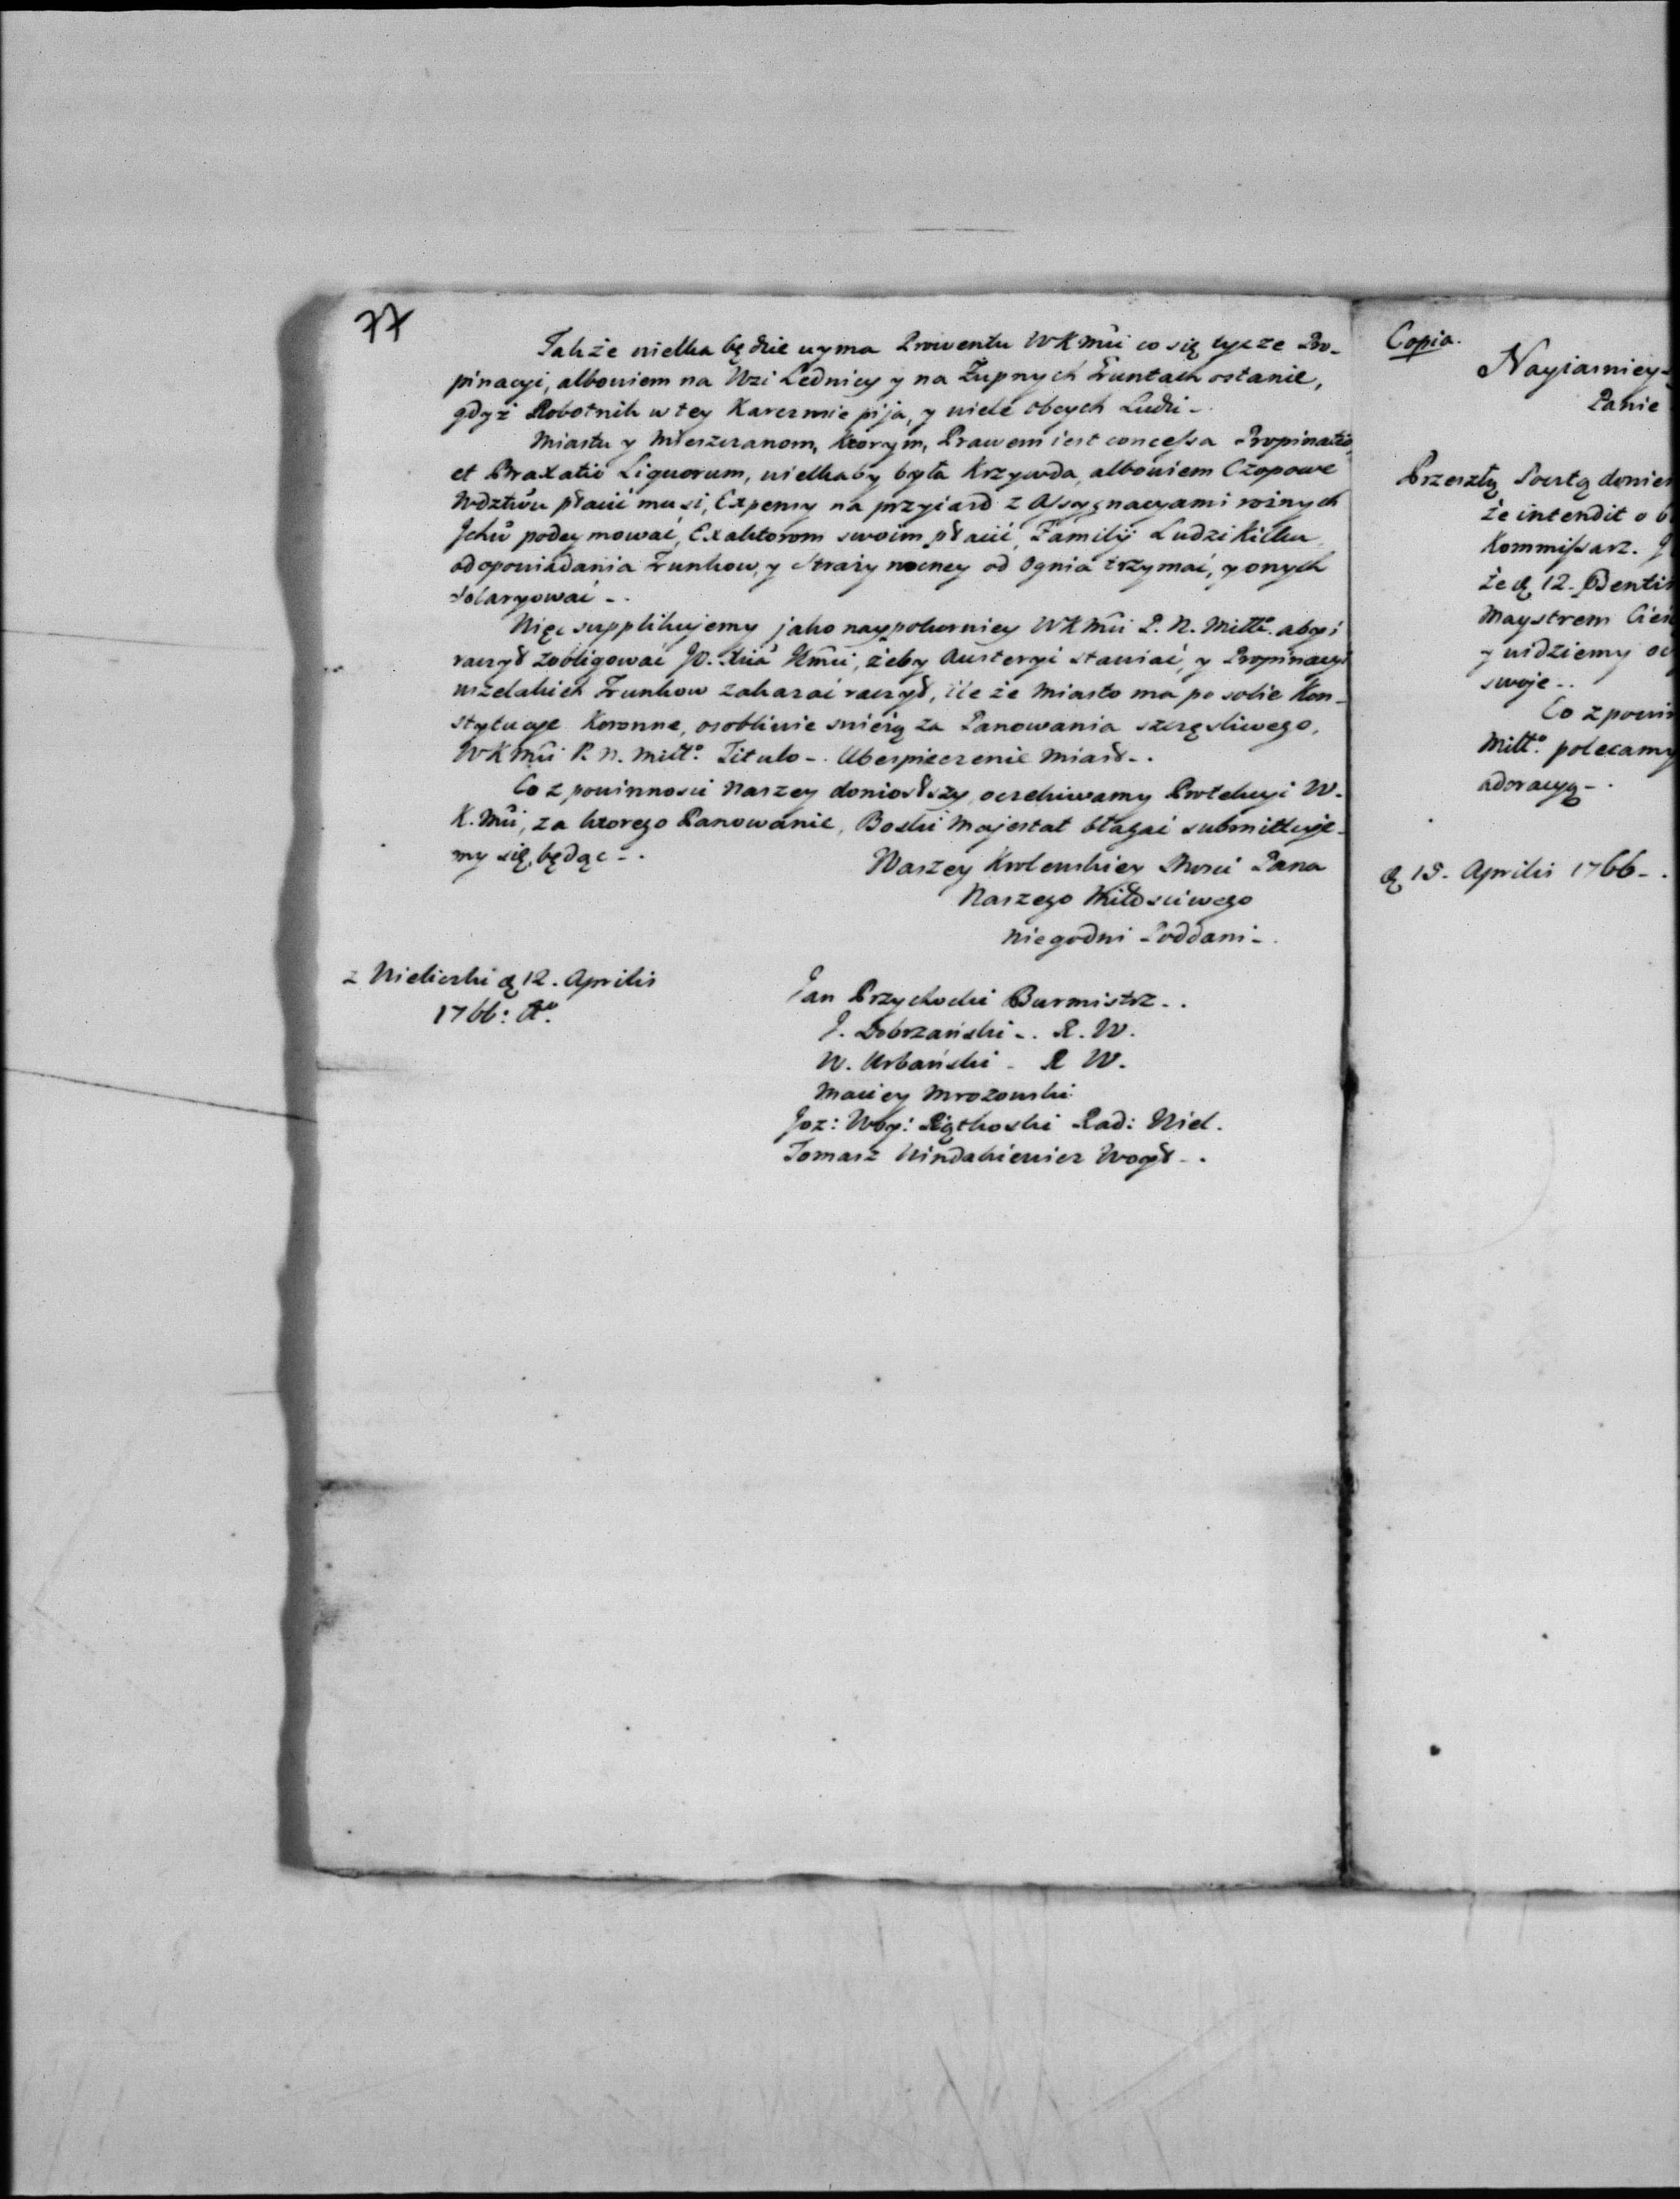 77
Także wielka będzie uyma Prowentu WKMći co się tycze Pro-
pinacyi, albowiem na Wzi Lednicy y na Żupnych Gruntach ostanie,
gdyż Robotnik w tey Karczmie pija, y wiele obcych Ludzi -.
Miastu y Mieszczanom, ktorym, Prawem iest concessa Propinatio
et Braxatio Liquorum, wielkaby była Krzywda, albowiem Czopowe
Wdztwu płacić musi, Expensy na przyiazd z Assygnacyami rożnych
Ichm̃ podeymować, Exaktorom swoim płacić, Familij Ludzi Kilku
od opowiadania Trunkow, y Straży nocney od Ognia trzymać, y onych
Salaryować -.
Więc supplikujemy jako naypokorniey WKMći P. N. Miłło. abyś
raczył zobligować JO. Xcia Jmći, żeby Austeryi stawiać, y Propinacyi
wszelakich Trunkow zakazać raczył, ile że Miasto ma po sobie Kon-
stytucye Koronne, osobliwie swieżą za Panowania szczęsliwego,
WKMći P. N. Miłło. Titulo -. Ubespieczenie Miast -.
Co z powinnosci Naszey doniosłszy, oczekiwamy Protekcyi W.
K. Mći, za ktorego Panowanie, Boski Majestat błagać submittuje-
my się, będąc -.
Waszey Krolewskiey Mosci Pana
Naszego Miłosciwego
niegodni Poddani -.
z Wieliczki d 12. Aprilis
1766: Ao.
Jan Przychocki Burmistrz -.
J. Dobrzański -. R. W.
W. Urbański - R W.
Maciey Mrozowski
Joz: Woy: Piątkoski Rad: Wiel.
Tomasz Windakiewicz Woyt -.
Copia.
Nayiasniey-
Panie
Przeszłą Pocztą donies
że intendit o b
Kommissarz. J
że d 12. praesentis
Maystrem Cieś
y widziemy oc
swoje -.
Co z powin
Miłło. polecamy
adoracyą -.
d 15. Aprilis 1766 -.